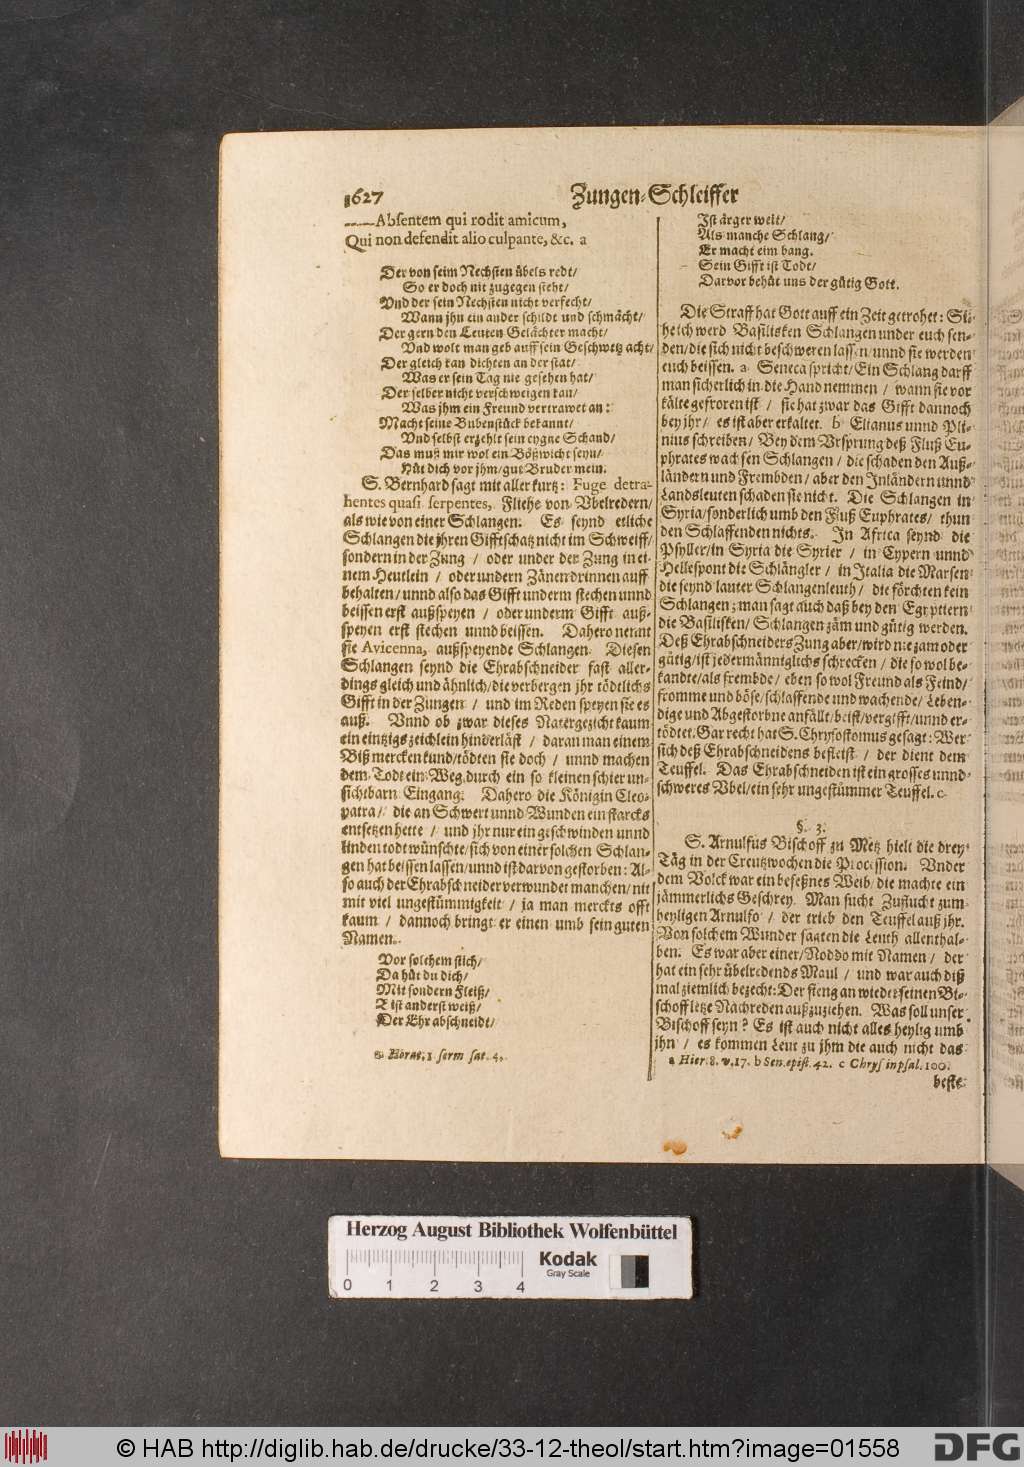 1627
Zungen-Schleiffer
Absentem qui rodit amicum,
Qui non defendit alio culpante, &c. a
Der von seim Nechsten übels redt/
So er doch nit zugegen steht/
Vnd der sein Nechsten nicht verfecht/
Wann jhn ein ander schildt und schmächt/
Der gern den Leuten Gelächter macht/
Vnd wolt man geb auff sein Geschwetz acht/
Der gleich kan dichten an der stat/
Was er sein Tag nie gesehen hat/
Der selber nicht verschweigen kan/
Was jhm ein Freund vertrawet an:
Macht seine Bubenstück bekannt/
Vnd selbst erzehlt sein eygne Schand/
Das muß mir wol ein Bößwicht seyn/
Hüt dich vor jhm/gut Bruder mein.
S. Bernhard sagt mit aller kurtz: Fuge detra-
hentes quasi serpentes, Fliehe von Vbelredern/
als wie von einer Schlangen. Es seynd etliche
Schlangen die jhren Gifftschatz nicht im Schweiff/
sondern in der Zung / oder under der Zung in ei-
nem Heutlein / oder undern Zänen drinnen auff
behalten/unnd also das Gifft underm stechen unnd
beissen erst außspeyen / oder underm Gifft auß-
speyen erst stechen unnd beissen. Dahero nennt
sie Avicenna, außspeyende Schlangen. Diesen
Schlangen seynd die Ehrabschneider fast aller-
dings gleich und ähnlich/die verbergen jhr tödtlichs
Gifft in der Zungen / und im Reden speyen sie es
auß. Vnnd ob zwar dieses Natergezicht kaum
ein eintzigs zeichlein hinderläst / daran man einem
Biß mercken kund/tödten sie doch / unnd machen
dem Todt ein Weg durch ein so kleinen schier un-
sichtbarn Eingang. Dahero die Königin Cleo-
patra/ die an Schwert unnd Wunden ein starcks
entsetzen hette / und jhr nur ein geschwinden unnd
linden todt wünschte/sich von einer solchen Schlan-
gen hat beissen lassen/unnd ist darvon gestorben: Al-
so auch der Ehrabschneider verwundet manchen/nit
mit viel ungestümmigkeit / ja man merckts offt
kaum / dannoch bringt er einen umb sein guten
Namen.
Vor solchem stich/
Da hüt du dich/
Mit sondern Fleiß/
T ist anderst weiß/
Der Ehr abschneidt/
a Horat. 1 serm sat. 4.
Ist ärger weit/
Als manche Schlang/
Er macht eim bang.
Sein Gifft ist Todt/
Darvor behüt uns der gütig Gott.
Die Straff hat Gott auff ein Zeit getrohet: Si-
he ich werd Basilisken Schlangen under euch sen-
den/die sich nicht beschweren lassen/unnd sie werden
euch beissen. a Seneca spricht/Ein Schlang darff
man sicherlich in die Hand nemmen / wann sie vor
kälte gefroren ist / sie hat zwar das Gifft dannoch
bey jhr/ es ist aber erkaltet. b Elianus unnd Pli-
nius schreiben/ Bey dem Vrsprung deß Fluß Eu-
phrates wachsen Schlangen / die schaden den Auß-
ländern und Frembden/ aber den Inländern unnd
Landsleuten schaden sie nicht. Die Schlangen in
Syria/sonderlich umb den Fluß Euphrates/ thun
den Schlaffenden nichts. In Africa seynd die
Psyller/in Syria die Syrier / in Cypern unnd
Hellespont die Schlängler / in Italia die Marsen
die seynd lauter Schlangenleuth / die förchten kein
Schlangen; man sagt auch daß bey den Egyptiern
die Basilisken/ Schlangen zäm und gütig werden.
Deß Ehrabschneiders Zung aber/wird nie zam oder
gütig/ist jedermänniglichs schrecken / die so wol be-
kandte/als frembde/ eben so wol Freund als Feind/
fromme und böse/schlaffende und wachende/Leben-
dige und Abgestorbne anfällt/beist/vergifft/unnd er-
tödtet. Gar recht hat S. Chrysostomus gesagt: Wer
sich deß Ehrabschneidens befleist / der dient dem
Teuffel. Das Ehrabschneiden ist ein grosses unnd
schweres Vbel/ein sehr ungestümmer Teuffel. c
§. 3.
S. Arnulfus Bischoff zu Metz hielt die drey
Täg in der Creutzwochen die Procession. Vnder
dem Volck war ein beseßnes Weib/die machte ein
jämmerlichs Geschrey. Man sucht Zuflucht zum
heyligen Arnulfo / der trieb den Teuffel auß jhr.
Von solchem Wunder sagten die Leuth allenthal-
ben. Es war aber einer/Noddo mit Namen / der
hat ein sehr übelredends Maul / und war auch diß
mal ziemlich bezecht: Der fieng an wieder seinen Bi-
schoff letze Nachreden außzuziehen. Was soll unser
Bischoff seyn? Es ist auch nicht alles heylig umb
jhn / es kommen Leut zu jhm die auch nicht das
a Hier. 8. v. 17. b Sen. epist. 42. c Chrys in psal. 100.
beste
Herzog August Bibliothek Wolfenbüttel
Kodak
Gray Scale
0 1 2 3 4
© HAB http://diglib.hab.de/drucke/33-12-theol/start.htm?image=01558
DFG